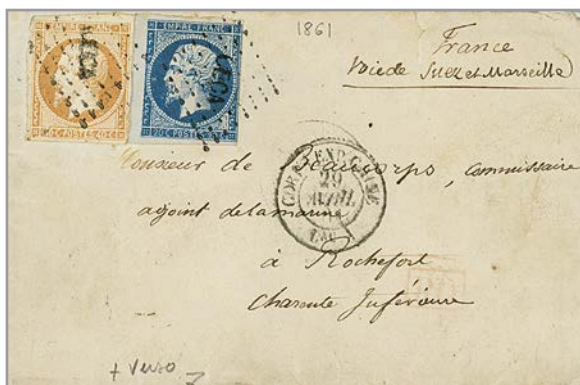 EMPIRE FRANC
40 C POSTES 40 C
CECA
EMPIRE FRANC
20 C POSTES 20 C
CECA
1861
France
Voie de Suez et Marseille
Monsieur de , commissaire
adjoint de la marine
à Rochefort
Charente Inférieure
CORR. EXP. CHINE
29
AVRIL
+ verso